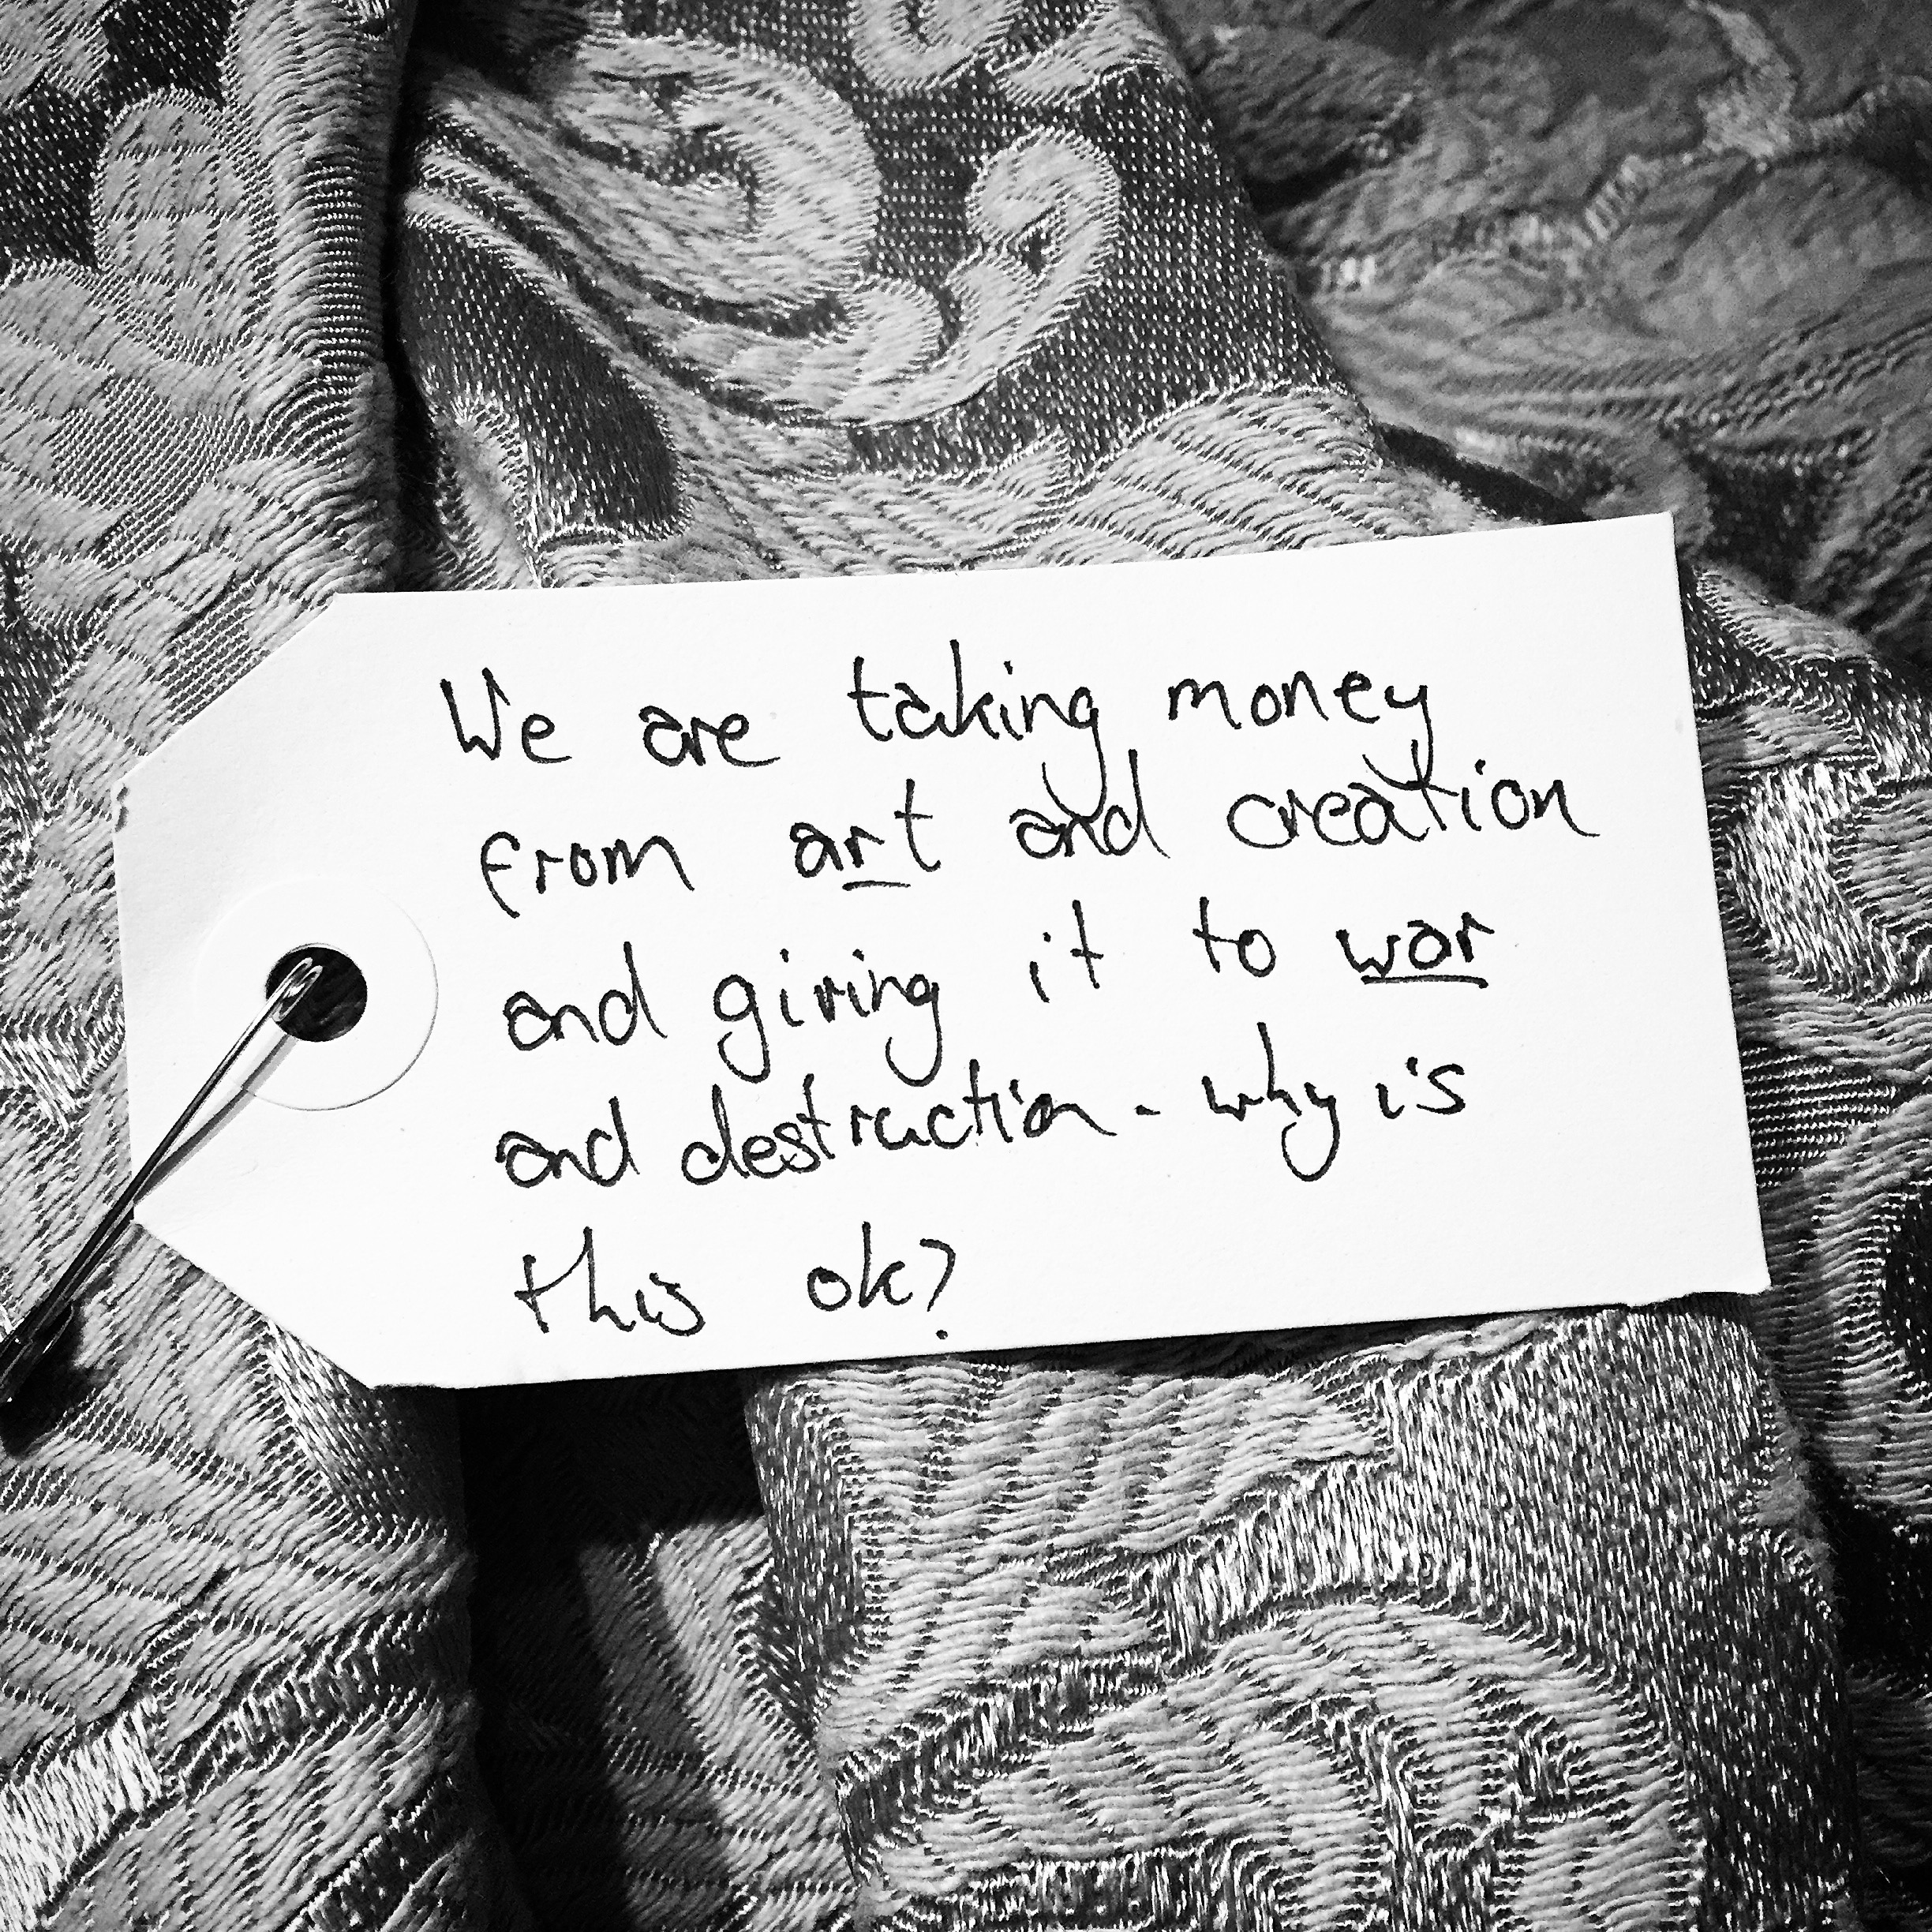 We are taking money
from art and creation
and giving it to war
and destruction - why is
this ok?